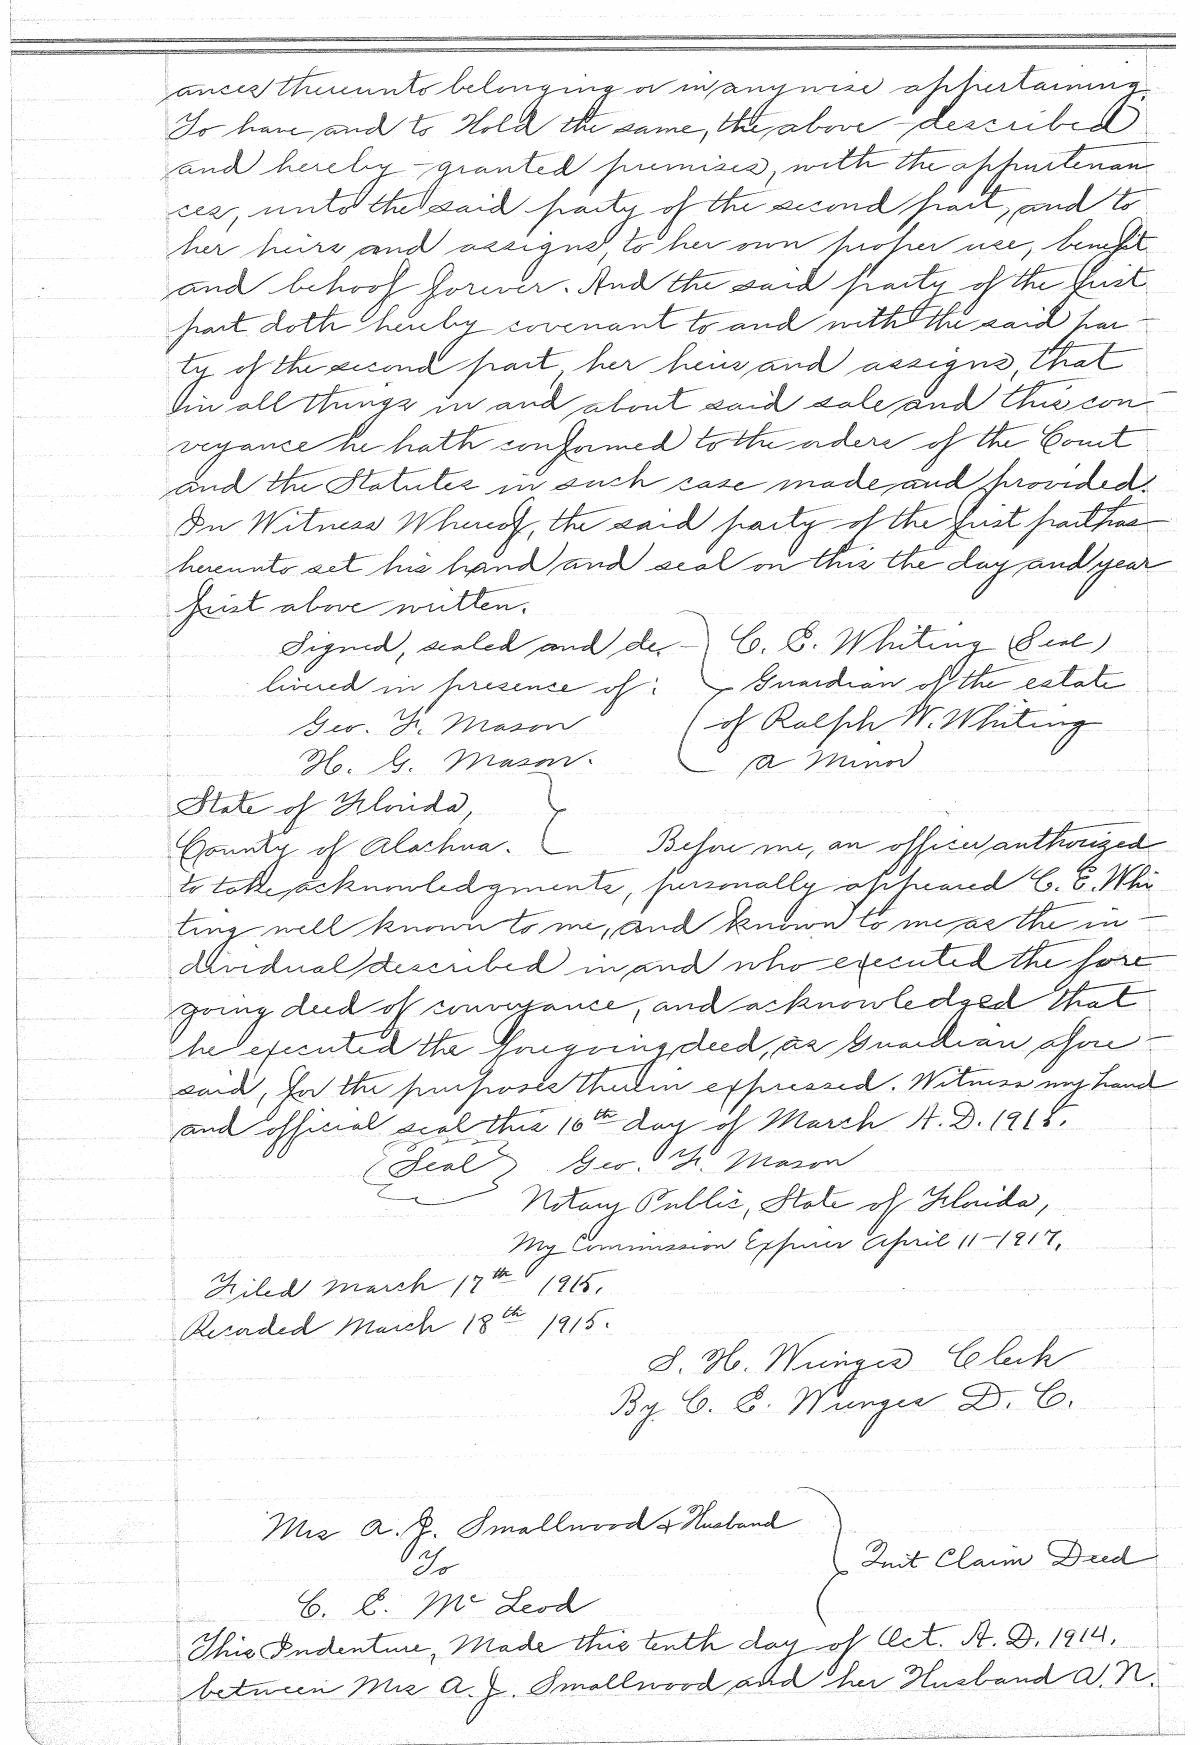 ances thereunto belonging or in anywise appertaining.
To have and to Hold the same, the above-described
and hereby-granted premises, with the appurtenan
ces, unto the said party of the second part, and to
her heirs and assigns, to her own proper use, benefit
and behoof forever. And the said party of the first
part doth hereby covenant to and with the said par-
ty of the second part, her heirs and assigns, that
in all things in and about said sale and this con-
veyance he hath conformed to the orders of the Court
and the Statutes in such case made and provided.
In Witness Whereof, the said party of the first part has
hereunto set his hand and seal on this the day and year
first above written.
Signed, sealed and de- C. E. Whiting (Seal)
livered in presence of: Guardian of the estate
Geo. F. Mason of Ralph W. Whiting
H. G. Mason. a Minor
State of Florida,
County of Alachua. Before me, an officer authorized
to take acknowledgments, personally appeared C. E. Whi
ting well known to me, and known to me as the in-
dividual described in and who executed the fore
going deed of conveyance, and acknowledged that
he executed the foregoing deed, as Guardian afore-
said, for the purposes therein expressed. Witness my hand
and official seal this 16th day of March A.D. 1915.
(Seal) Geo. F. Mason
Notary Public, State of Florida,
My Commission Expires April 11-1917.
Filed March 17th 1915.
Recorded March 18th 1915.
S. H. Wienges Clerk
By C. E. Wienges D. C.
Mrs A. J. Smallwood & Husband
To Quit Claim Deed
C. E. McLeod
This Indenture, Made this tenth day of Oct. A. D. 1914.
between Mrs A. J. Smallwood and her Husband W. N.